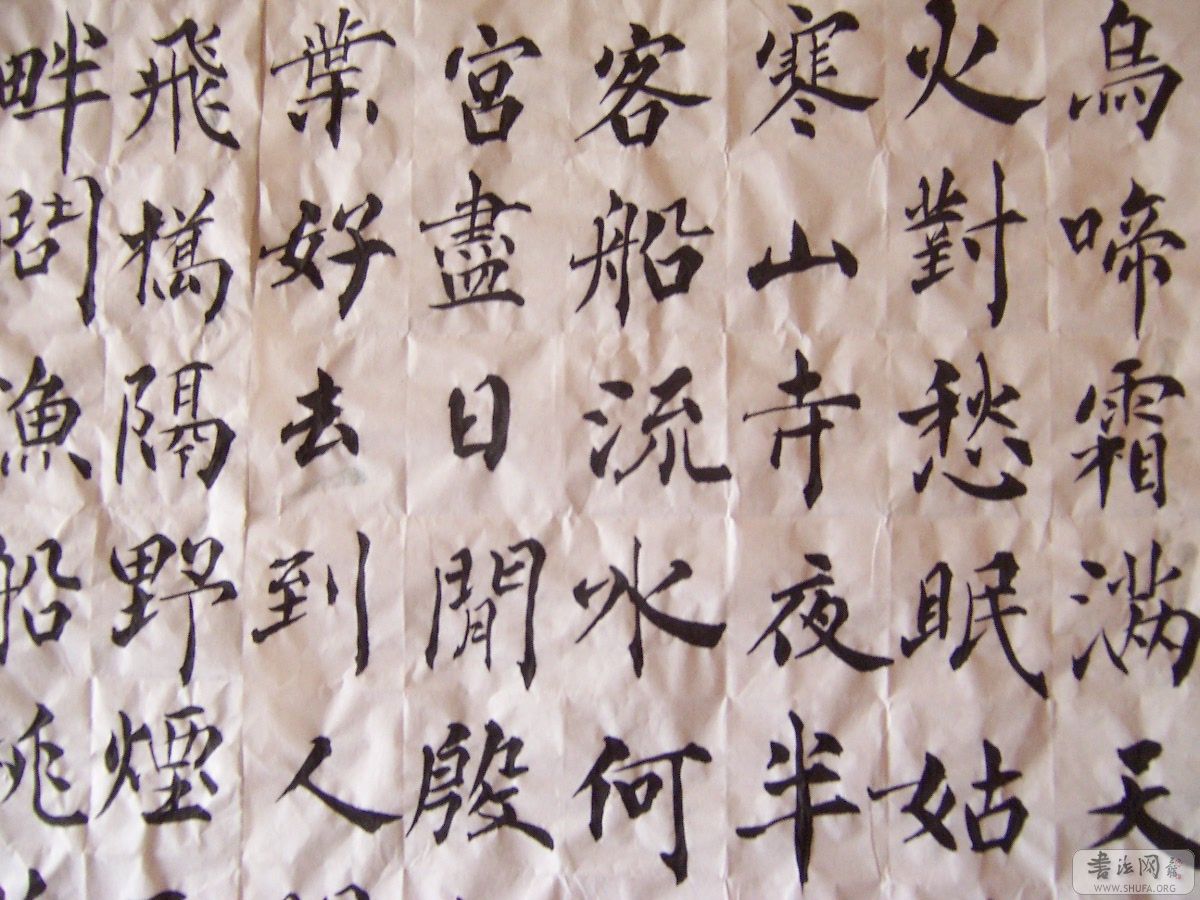 烏啼霜滿天
火對愁眠姑
寒山寺夜半
客船流水何
宮盡日閒殷
業好去到人
飛橋隔野煙
畔問漁船桃
書法网
WWW.SHUFA.ORG